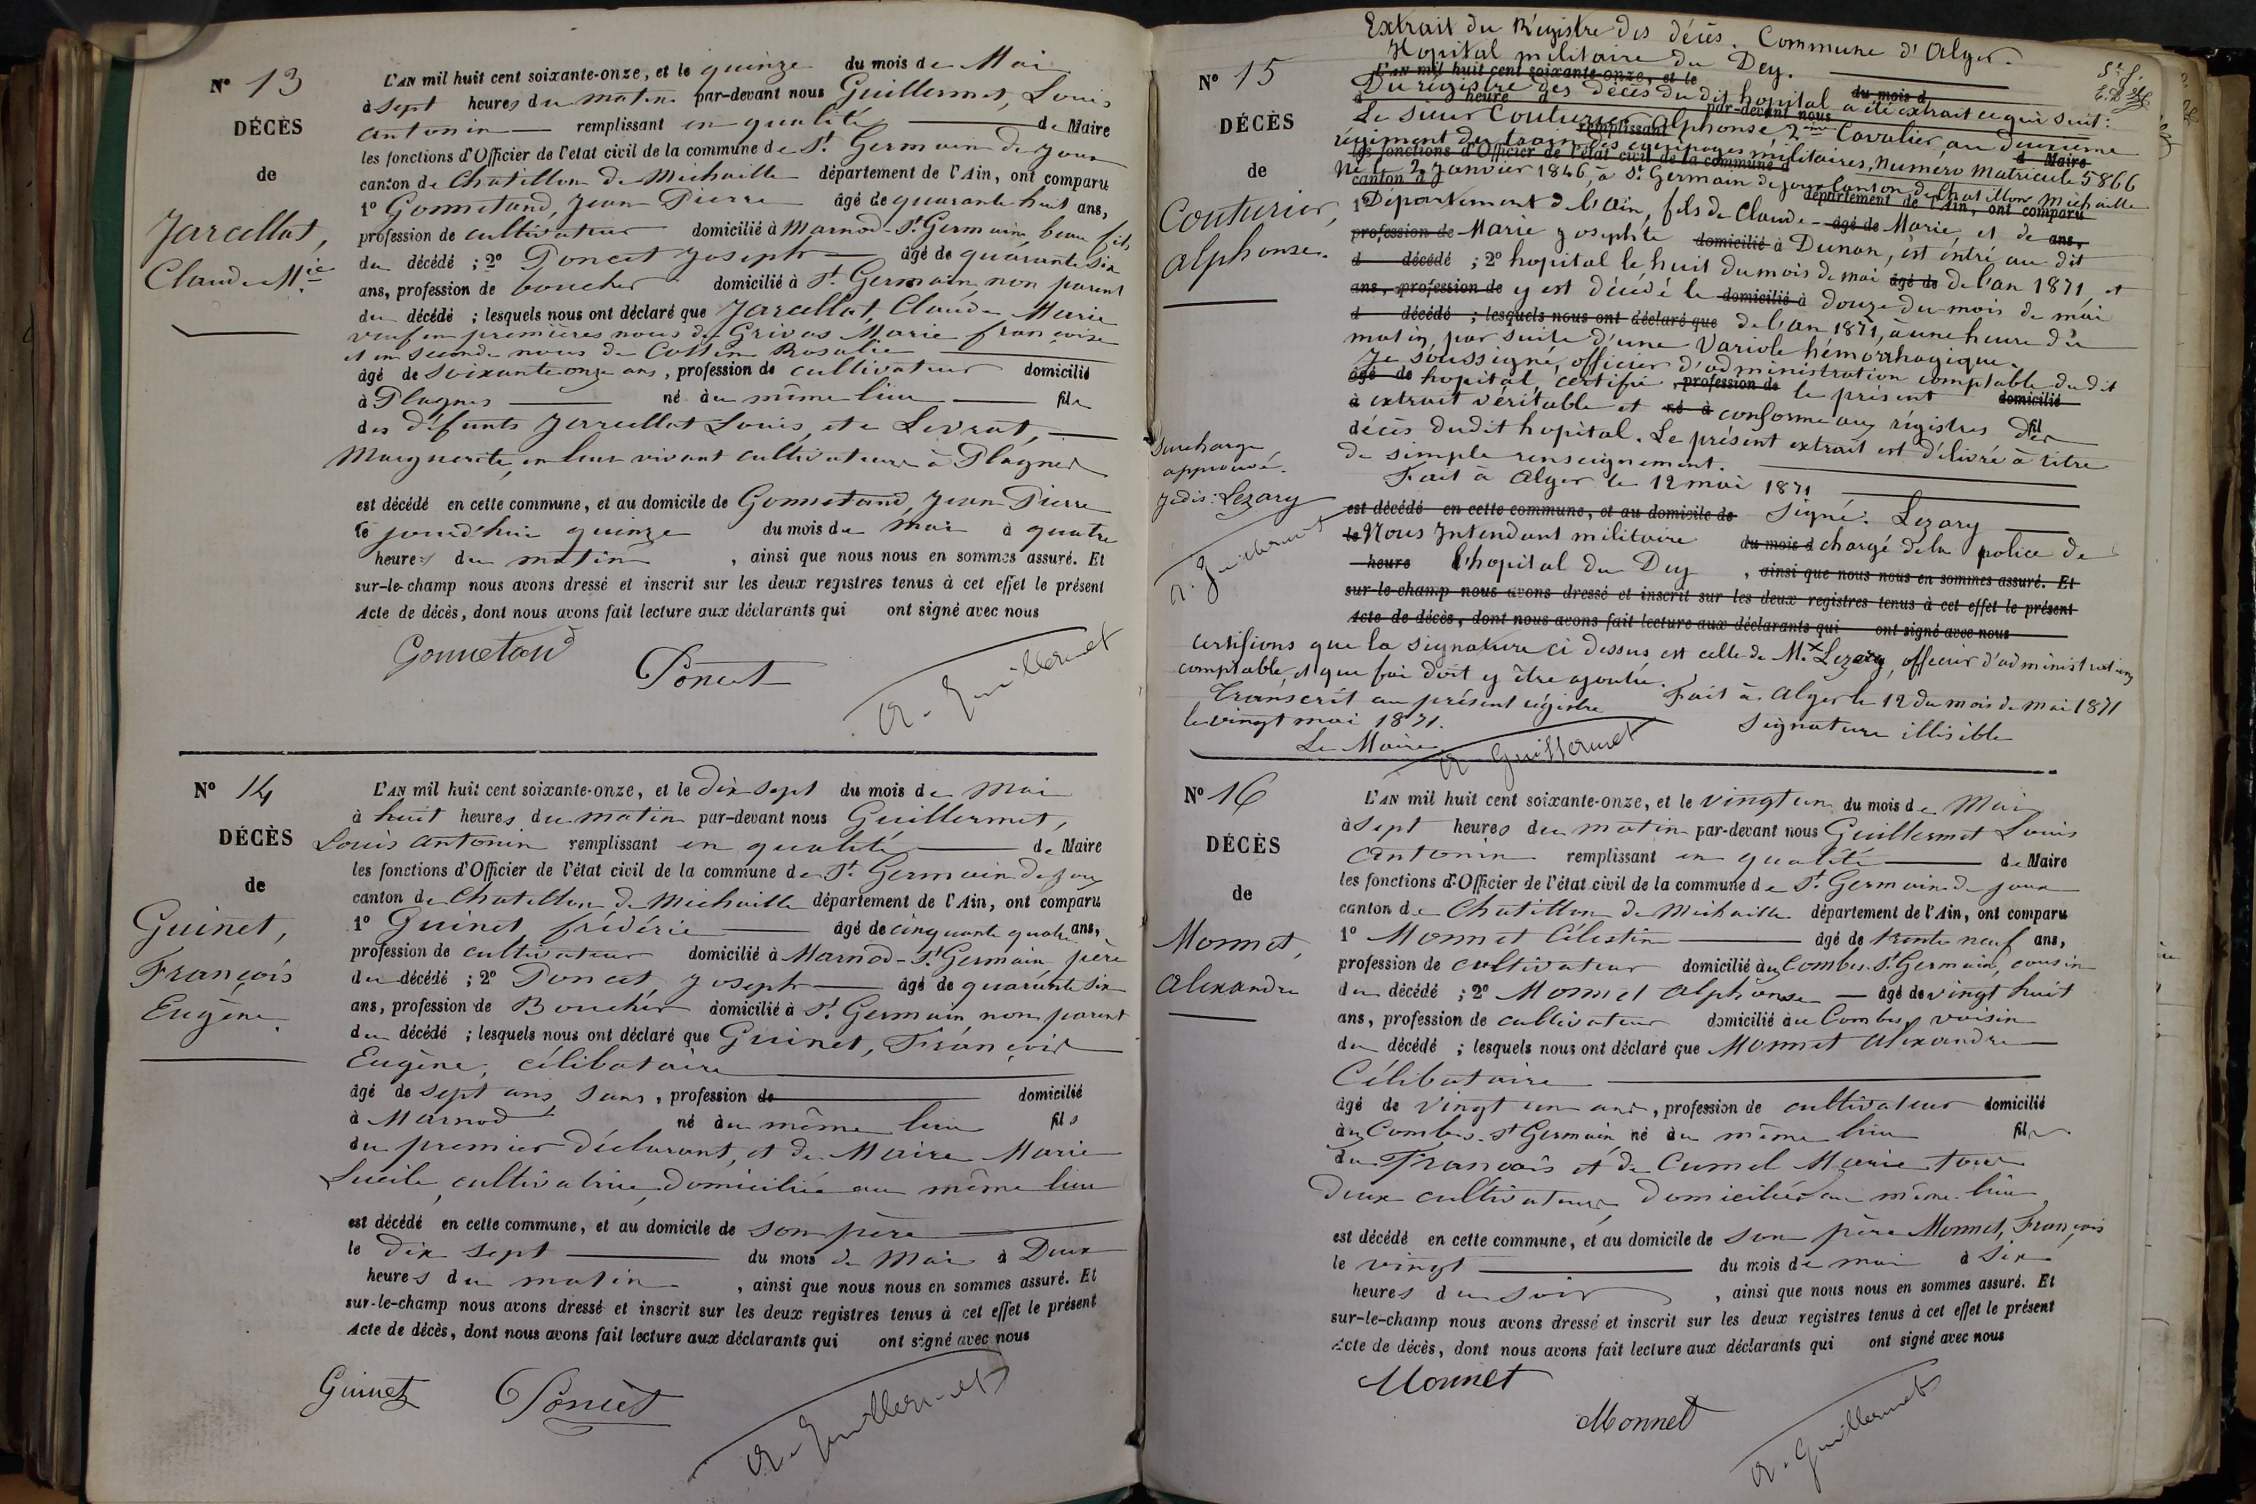 N° 13
DÉCÈS
de
Jarcellat,
Claude M.ie
L'AN mil huit cent soixante-onze, et le quinze du mois de Mai
à sept heures du matin par-devant nous Guillermet, Louis
antonin remplissant en qualité de Maire
les fonctions d'Officier de l'état civil de la commune de St. Germain de joux
canton de Chatillon de Michaille département de l'Ain, ont comparu
1° Gonnetand, Jean Pierre âgé de quarante huit ans,
profession de cultivateur domicilié à Marnod - St. Germain beau fils
du décédé ; 2° Poncet Joseph âgé de quarante six
ans, profession de boucher domicilié à St. Germain non parent
du décédé ; lesquels nous ont déclaré que Jarcellat Claude Marie
veuf en premières noces de Grivas Marie françoise
et en seconde noces de Cottin Rosalie
âgé de soixante onze ans, profession de cultivateur domicilié
à Plagnes né au même lieu fils
des défunts Jarcellat Louis, et de Levrat,
Marguerite, en leur vivant cultivateurs à Plagnes
est décédé en cette commune, et au domicile de Gonnetand, Jean Pierre
le jourd'hui quinze du mois de mai à quatre
heures du matin, ainsi que nous nous en sommes assuré. Et
sur-le-champ nous avons dressé et inscrit sur les deux registres tenus à cet effet le présent
Acte de décès, dont nous avons fait lecture aux déclarants qui ont signé avec nous
Gonnetand
Poncet
A. Guillermet
N° 14
DÉCÈS
de
Guinet,
François
Eugène.
L'AN mil huit cent soixante-onze, et le dix sept du mois de Mai
à huit heures du matin par-devant nous Guillermet,
Louis antonin remplissant en qualité de Maire
les fonctions d'Officier de l'état civil de la commune de St. Germain de joux
canton de Chatillon de Michaille département de l'Ain, ont comparu
1° Guinet frédéric âgé de cinquante quatre ans,
profession de cultivateur domicilié à Marnod - St. Germain père
du décédé ; 2° Poncet, Joseph âgé de quarante six
ans, profession de Boucher domicilié à St. Germain, non parent
du décédé ; lesquels nous ont déclaré que Guinet, François
Eugène, célibataire
âgé de sept ans, sans, profession de domicilié
à Marnod né au même lieu fils
du premier déclarant, et de Maire Marie
Lucile, cultivatrice domiciliée au même lieu
est décédé en cette commune, et au domicile de son père
le dix sept du mois de Mai à Deux
heures du matin, ainsi que nous nous en sommes assuré. Et
sur-le-champ nous avons dressé et inscrit sur les deux registres tenus à cet effet le présent
Acte de décès, dont nous avons fait lecture aux déclarants qui ont signé avec nous
Guinet Poncet
A. Guillermet
Extrait du Régistre des décès. Commune d'Alger.
Hopital militaire du Dey.
N° 15
DÉCÈS
de
Couturier,
alphonse.
L'AN mil huit cent soixante-onze, et le du mois d
Du régistre des décès du dit hopital a été extrait ce qui suit :
à heure d par-devant nous
Le sieur Couturier alphonse, 2ème Cavalier au deuxième
remplissant d Maire
régiment du train des équipages militaires, numéro matricule 5866
les fonctions d'Officier de l'état civil de la commune d
Né le 2 Janvier 1846, à St. Germain de joux Canton de Chatillon Michaille
canton d département de l'Ain, ont comparu
1° Département de l'ain, fils de Claude âgé de Marie, et de ans,
profession de Marie josephte domicilié à Dunan, est entré au dit
d décédé ; 2° hopital le huit du mois de mai âgé de de l'an 1871, et
ans, profession de y est décédé le domicilié à douze du mois de mai
d décédé ; lesquels nous ont déclaré que de l'an 1871, à une heure du
matin, par suite d'une Variole hémorrhagique.
Je soussigné, officier d'administration comptable du dit
âgé de hopital, certifie, profession de le présent domicilié
à extrait véritable et né à conforme aux régistres des fil
décès dudit hopital. Le présent extrait est délivré à titre
de simple renseignement.
Fait à Alger le 12 mai 1871
Surcharge
approuvé.
Jedis : Lezary
A. Guillermet
est décédé en cette commune, et au domicile de Signé : Lezary
le Nous Intendant militaire du mois d chargé de la police de
heure l'hopital du Dey, ainsi que nous nous en sommes assuré. Et
sur-le-champ nous avons dressé et inscrit sur les deux registres tenus à cet effet le présent
Acte de décès, dont nous avons fait lecture aux déclarants qui ont signé avec nous
certifions que la signature ci dessus est celle de Mr. Lezary, officier d'administration
comptable, et que foi doit y être ajoutée. Fait à Alger le 12 du mois de mai 1871
Transcrit au présent régistre
le vingt mai 1871. Signature illisible
Le Maire
A. Guillermet
N° 16
DÉCÈS
de
Monnet,
alexandre
L'AN mil huit cent soixante-onze, et le vingt un du mois de Mai
à sept heures du matin par-devant nous Guillermet Louis
antonin remplissant en qualité de Maire
les fonctions d'Officier de l'état civil de la commune de St. Germain de joux
canton de Chatillon de Michaille département de l'Ain, ont comparu
1° Monnet Célestin âgé de trente neuf ans,
profession de cultivateur domicilié aux Combes St. Germain, cousin
du décédé ; 2° Monnet alphonse âgé de vingt huit
ans, profession de cultivateur domicilié au Combes voisin
du décédé ; lesquels nous ont déclaré que Monnet alexandre
Célibataire
âgé de vingt un ans, profession de cultivateur domicilié
aux Combes. St Germain, né au même lieu fils
de François et de Cumel Marie tous
deux cultivateurs domiciliés au même lieu
est décédé en cette commune, et au domicile de son père Monnet, François
le vingt du mois de mai à six
heures du soir, ainsi que nous nous en sommes assuré. Et
sur-le-champ nous avons dressé et inscrit sur les deux registres tenus à cet effet le présent
Acte de décès, dont nous avons fait lecture aux déclarants qui ont signé avec nous
Monnet
Monnet
A. Guillermet